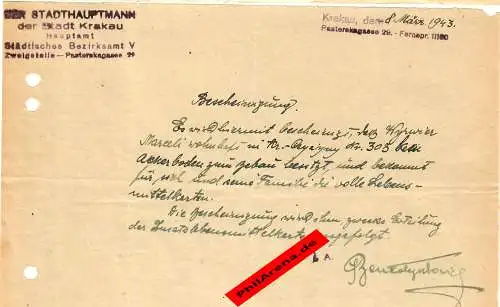 DER STADTHAUPTMANN
der Stadt Krakau
Hauptamt
Städtisches Bezirksamt V
Zweigstelle - Pasterskagasse 29
Krakau, den 8 März 1943.
Pasterskagasse 29. - Fernspr. 11180
Bescheinigung.
Es wird hiermit bescheinigt, daß Wyrwicz
Marceli wohnhaft in Nr. 305 kein
Ackerboden zum besitzt, und bekommt
für sich und seine Familie die volle Lebens-
mittelkarten.
Die Bescheinigung wird ihm zwecks Erteilung
der Zusatzlebensmittelkarte ausgefolgt.
PhilArena.de